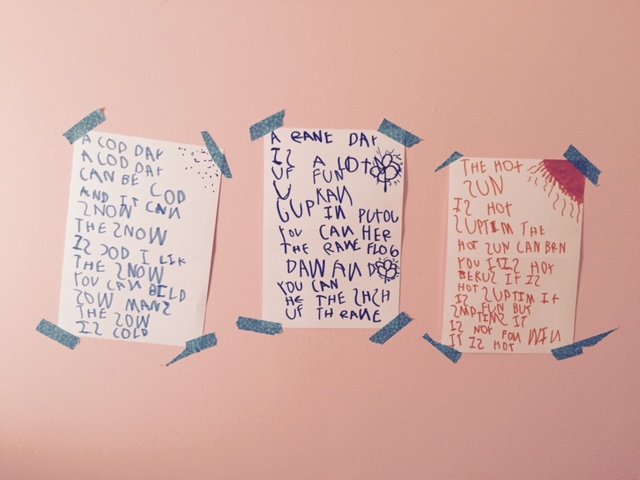 A COD DAY
A COD DAY
CAN BE COD
AND IT CAN
SNOW
THE SNOW
IS SOD I LIK
THE SNOW
YOU CAN BILD
SOW MANS
THE SOW
IS COLD
A RANE DAY
IS A LOT
UF FUN
U KAN
GUP IN PUTOU
YOU CAN HER
THE RANE FLOG
DAWN AND
YOU CAN
HE THE SHSH
UF TH RANE
THE HOT
SUN
IS HOT
SUPTIM THE
HOT SUN CAN BRN
YOU ITIS HOT
BEKUS IT IS
HOT SUPTIM IT
IS FUN BUT
SMPTIMS IT
IS NOT FOU WIN
IT IS HOT